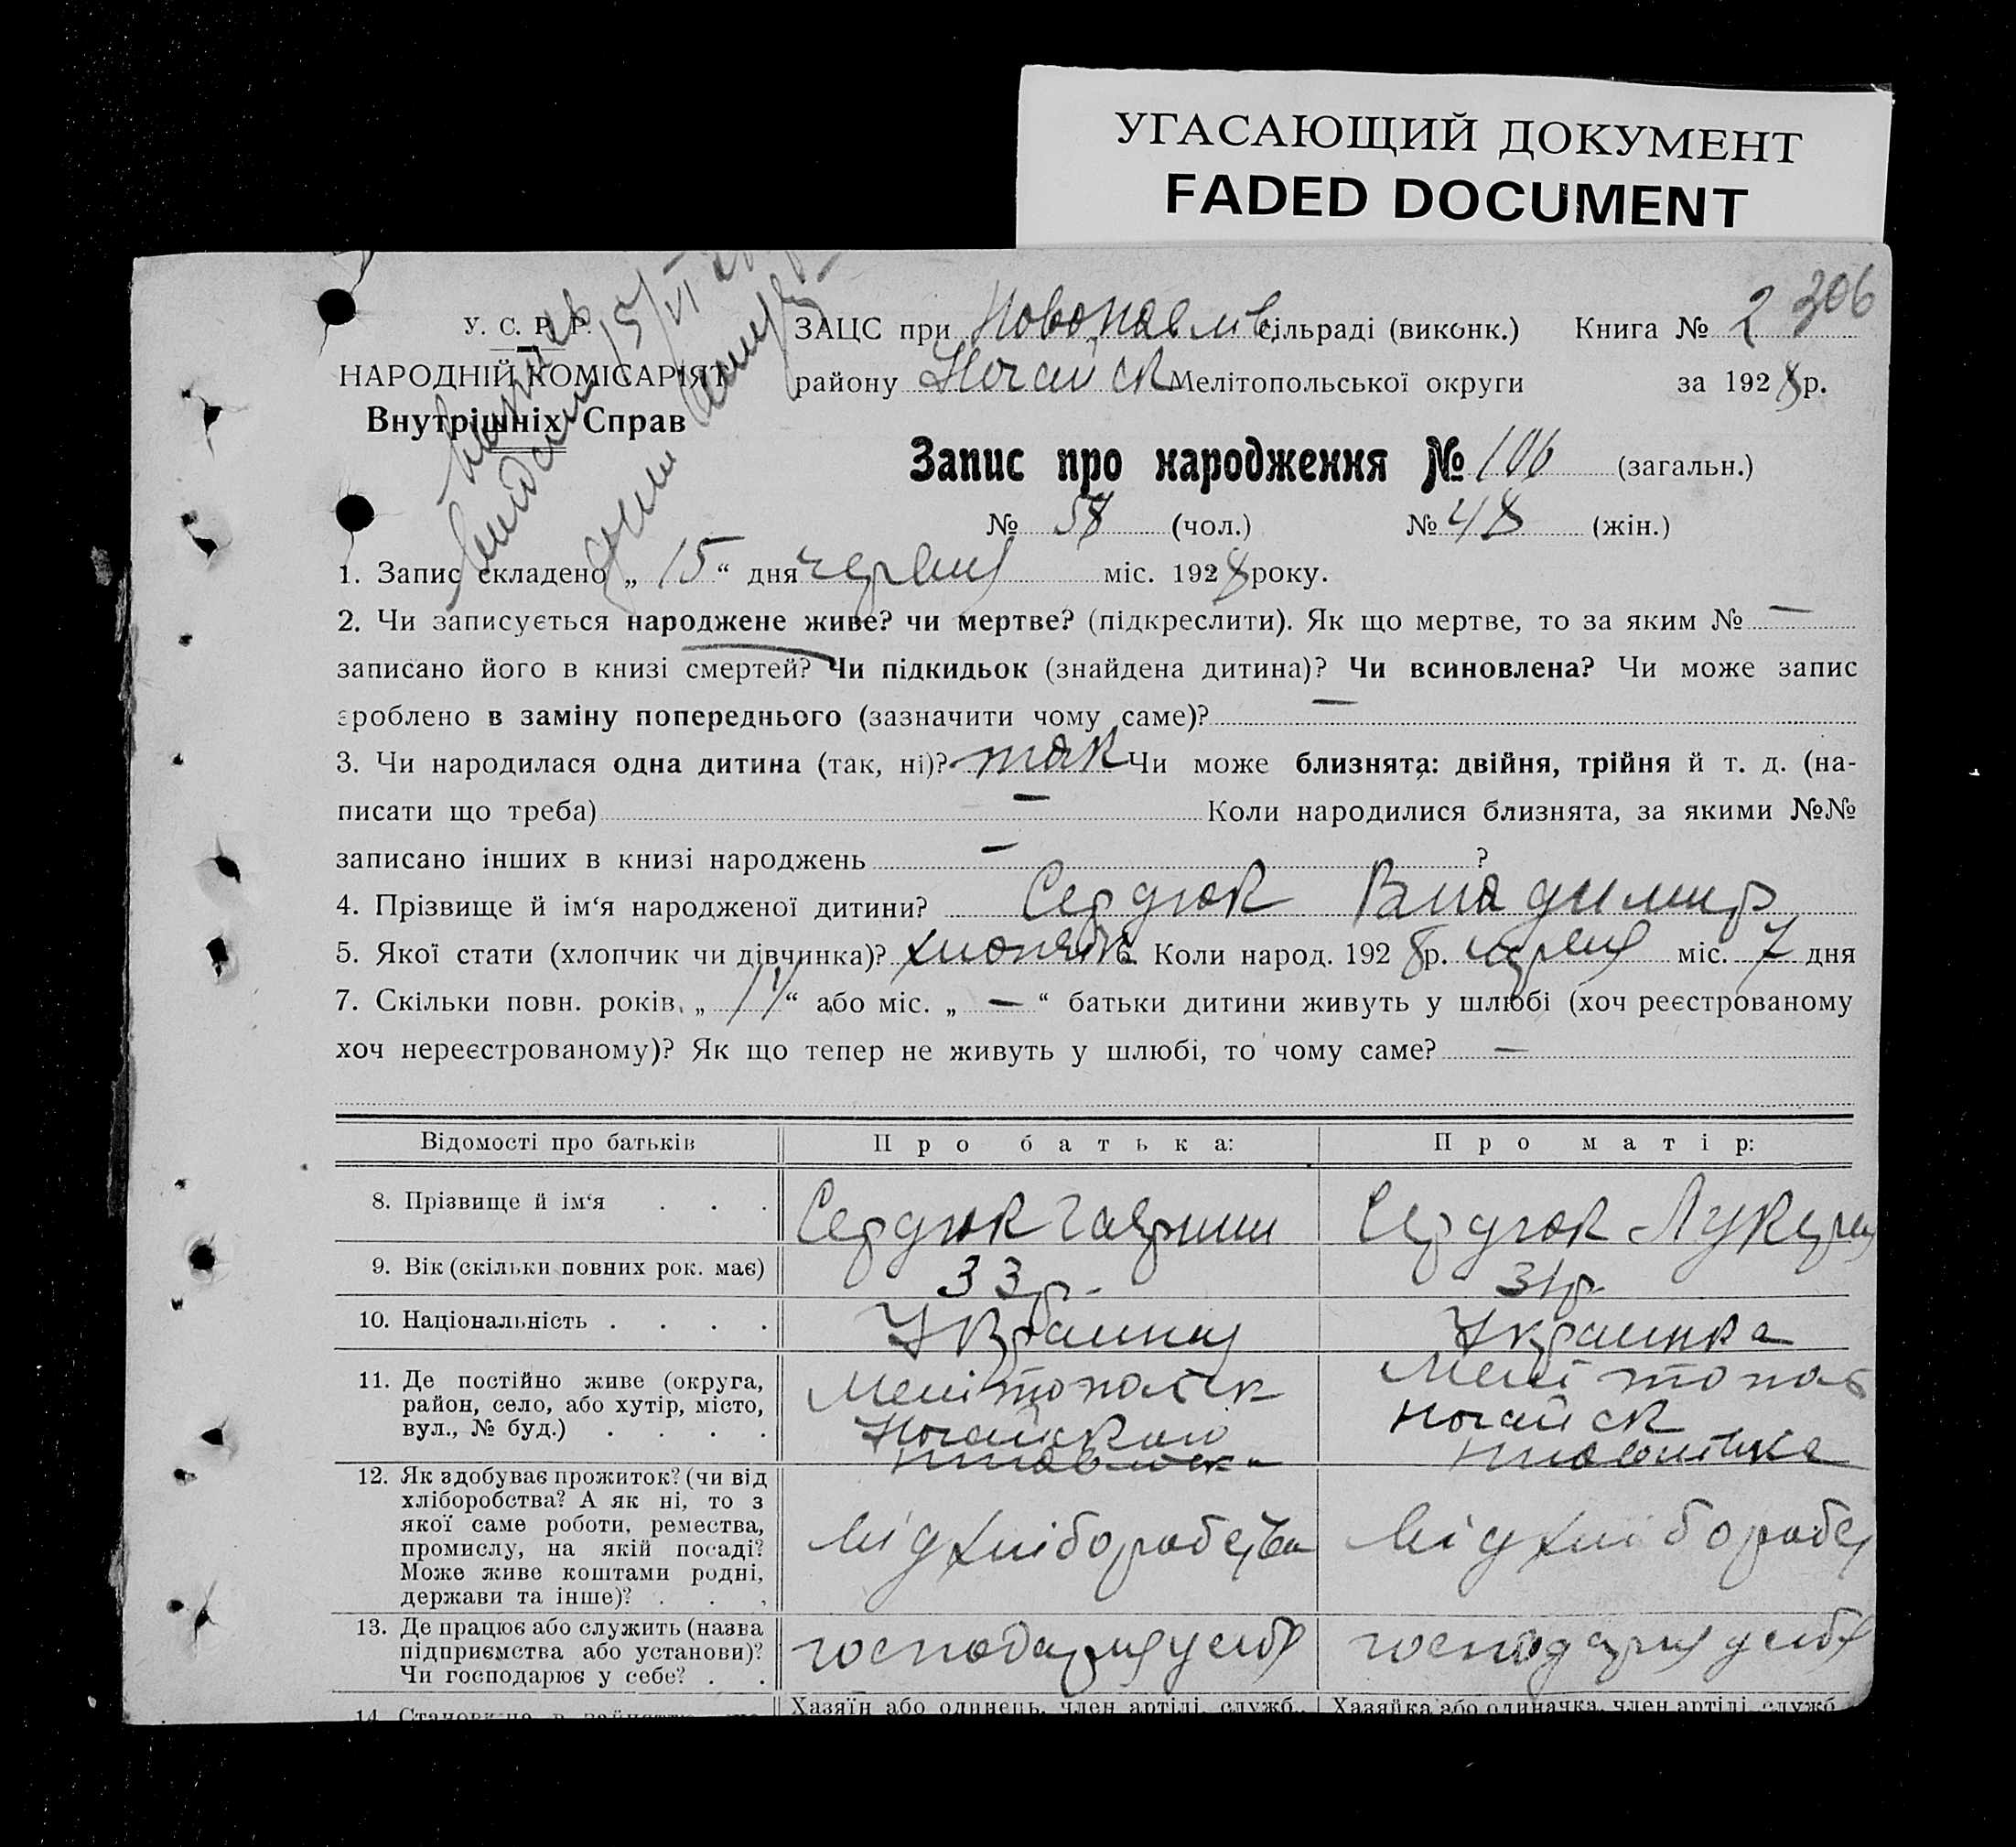 УГАСАЮЩИЙ ДОКУМЕНТ
FADED DOCUMENT
306
У. С. Р. Р.
НАРОДНІЙ КОМІСАРІЯТ
Внутрішніх Справ
ЗАЦС при Новопавлів. сільраді (виконк.) Книга № 2
району Ногайськ Мелітопольської округи за 1928 р.
Запис про народження № 106 (загальн.)
№ 58 (чол.) № 48 (жін.)
1. Запис складено „ 15 “ дня червня міс. 1928 року.
2. Чи записується народжене живе? чи мертве? (підкреслити). Як що мертве, то за яким № —
записано його в книзі смертей? Чи підкидьок (знайдена дитина)? Чи всиновлена? Чи може запис
зроблено в заміну попереднього (зазначити чому саме)? —
3. Чи народилася одна дитина (так, ні)? так Чи може близнята: двійня, трійня й т. д. (на-
писати що треба) — Коли народилися близнята, за якими №№
записано інших в книзі народжень — ?
4. Прізвище й ім‘я народженої дитини? Сердюк Владимир
5. Якої стати (хлопчик чи дівчинка)? Коли народ. 1928 р. червня міс. 7 дня
7. Скільки повн. років „ 11 “ або міс. „ — “ батьки дитини живуть у шлюбі (хоч реєстрованому
хоч нереєстрованому)? Як що тепер не живуть у шлюбі, то чому саме? —
Відомості про батьків Про батька: Про матір:
8. Прізвище й ім‘я . . . Сердюк Гаврило Сердюк Лукеря
9. Вік (скільки повних рок. має) 33 р. 31 р.
10. Національність . . . . Українец Украинка
11. Де постійно живе (округа,
район, село, або хутір, місто,
вул., № буд.) . . . .
Мелітопольськ
Мелітопол
Ногайск
12. Як здобуває прожиток? (чи від
хліборобства? А як ні, то з
якої саме роботи, ремества,
промислу, на якій посаді?
Може живе коштами родні,
держави та інше)? . . .
Від хліборобства
Від хліборобс
13. Де працює або служить (назва
підприємства або установи)?
Чи господарює у себе? . .
господарує у себе
господарує у себе
14. Становище в занятті
Хазяїн або одинець, член артілі, служб.
Хазяйка або одиначка, член артілі, служб.